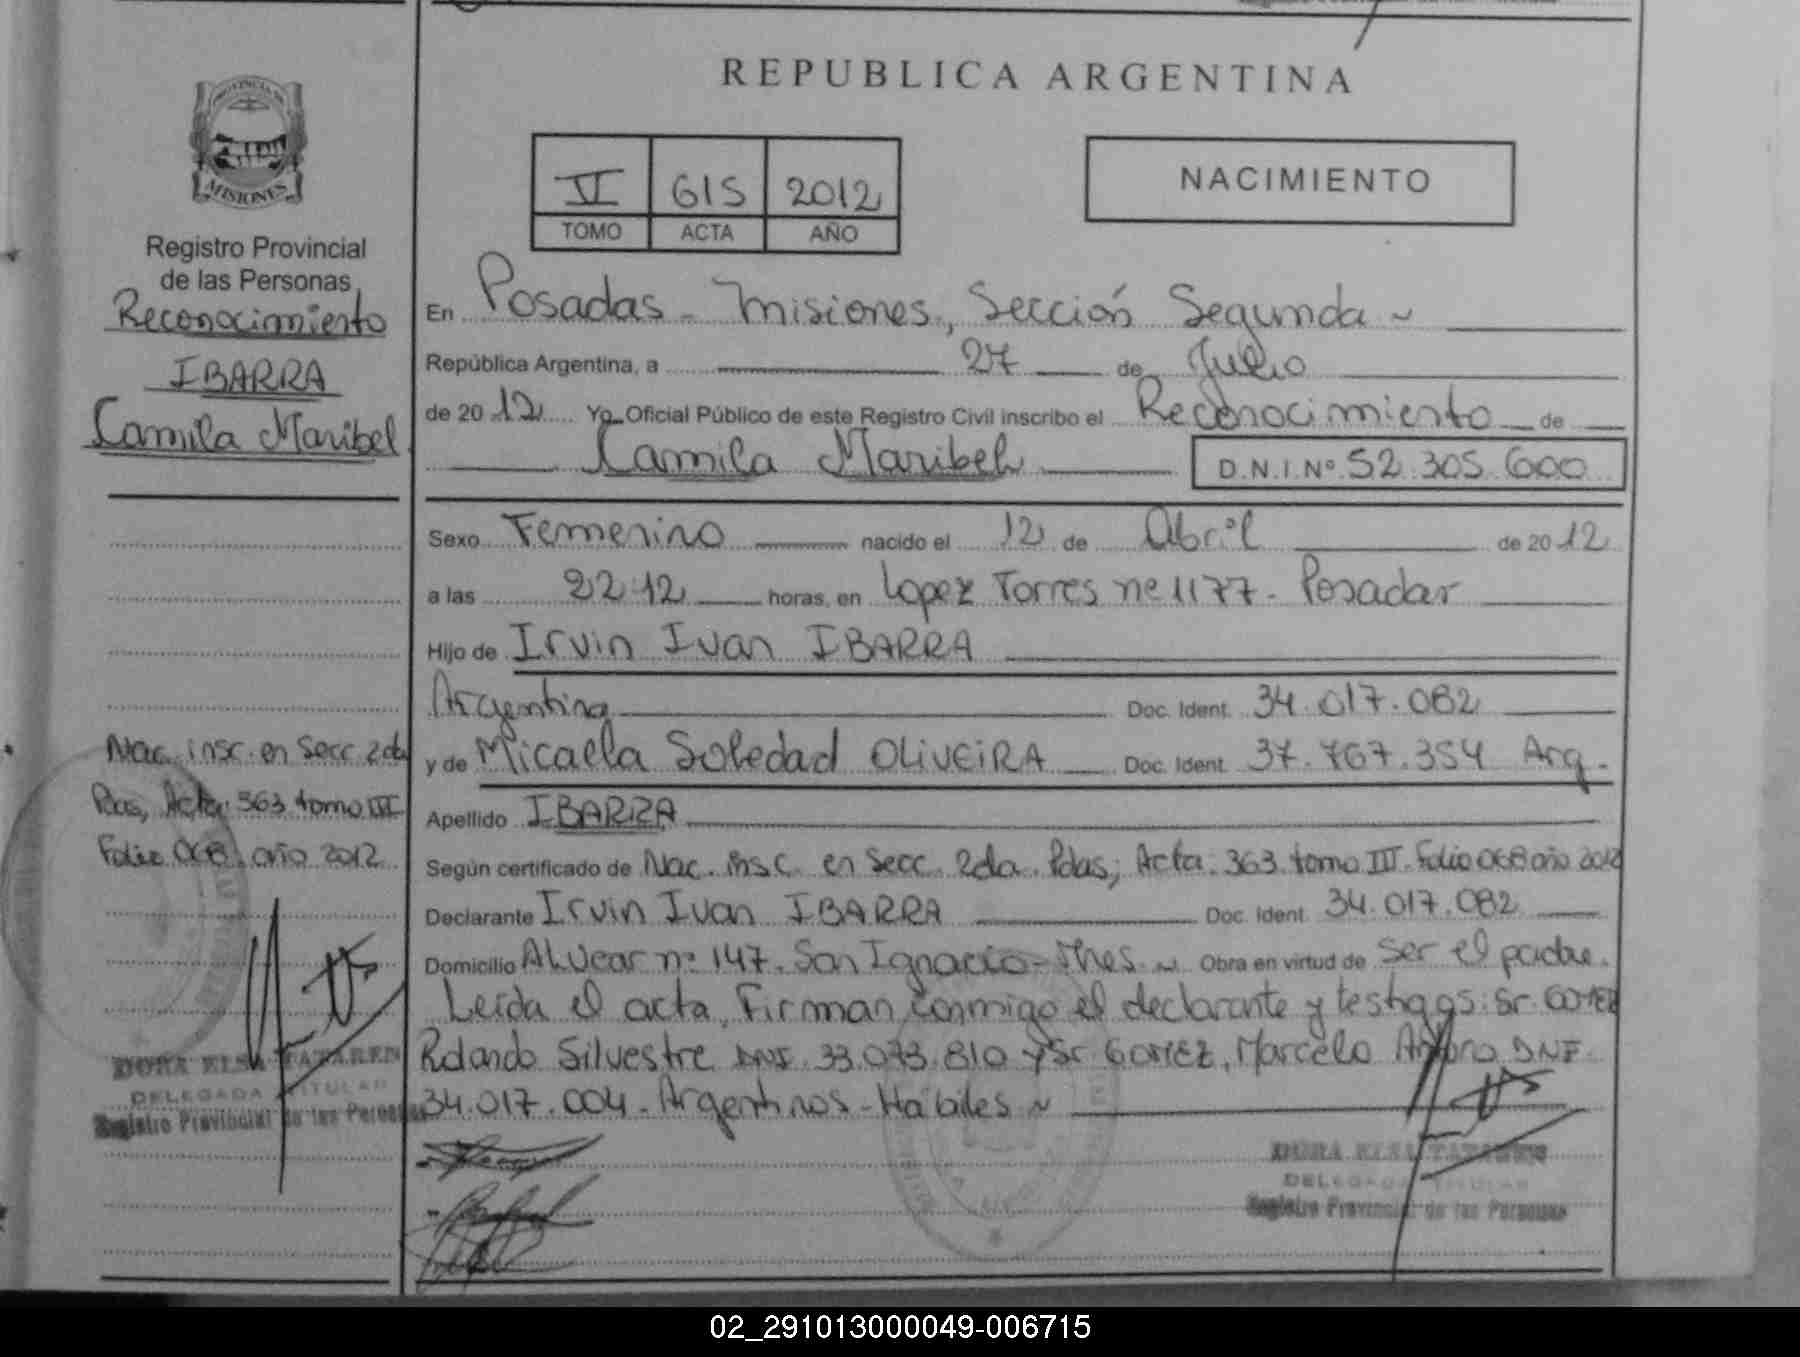 REPUBLICA ARGENTINA
PROVINCIA DE
MISIONES
Registro Provincial
de las Personas
Reconocimiento
IBARRA
Camila Maribel
VI 615 2012
TOMO ACTA AÑO
NACIMIENTO
En Posadas - Misiones, Sección Segunda
República Argentina, a 27 de Julio
de 2012 Yo Oficial Público de este Registro Civil inscribo el Reconocimiento de
Camila Maribel D.N.I.Nº 52.305.600
Sexo Femenino nacido el 12 de Abril de 2012
a las 22:12 horas, en Lopez Torres nº 1177 - Posadas
Hijo de Irvin Ivan IBARRA
Argentina Doc. Ident. 34.017.082
y de Micaela Soledad OLIVEIRA Doc. Ident. 37.767.354 Arg.
Apellido IBARRA
Según certificado de Nac. insc. en Secc. 2da. Pdas; Acta: 363 tomo III Folio 068 año 2012
Declarante Irvin Ivan IBARRA Doc. Ident. 34.017.082
Domicilio Alvear nº 147. San Ignacio - Mnes. Obra en virtud de ser el padre.
Leída el acta, Firman conmigo el declarante y testigos: Sr. GOMEZ
Rolando Silvestre DNI 33.073.810 y Sr GOMEZ, Marcelo Arturo DNI
34.017.004 - Argentinos - Hábiles
Nac. insc. en Secc 2da
Pdas, Acta: 363 tomo III
Folio 068 año 2012
DORA ELSA TATAREN
DELEGADA TITULAR
Registro Provincial de las Personas
DORA ELSA TATAREN
DELEGADA TITULAR
Registro Provincial de las Personas
02_291013000049-006715